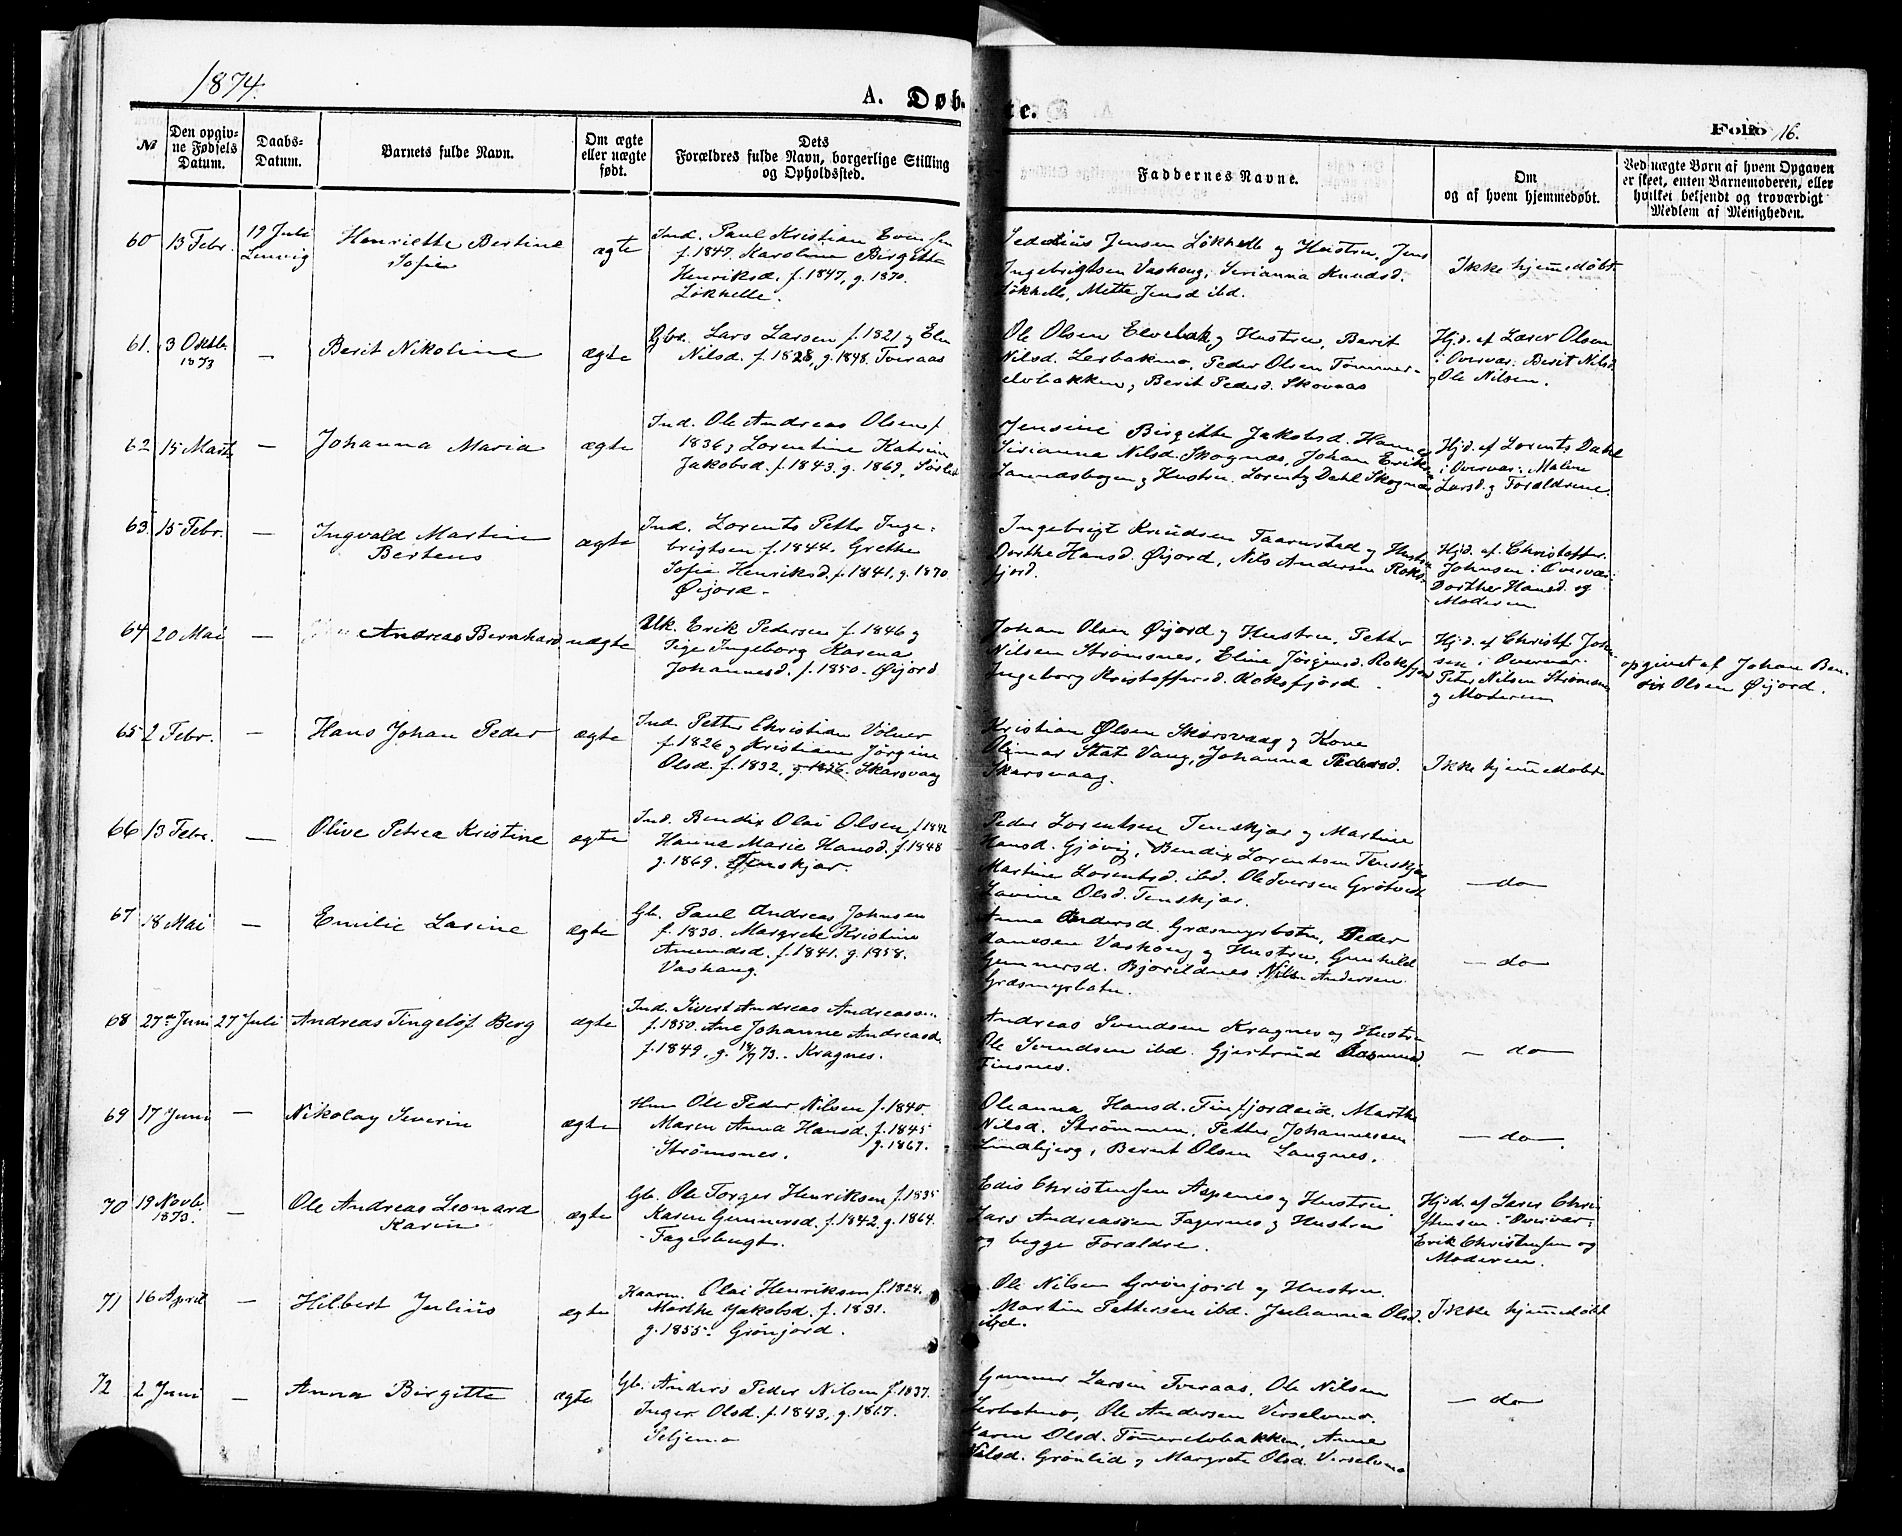 1874.
A. Døbte.
Folio 16.
No
Den opgiv-
ne Fødsels
Datum.
Daabs-
Datum.
Barnets fulde Navn.
Om ægte
eller uægte
født.
Dets
Forældres fulde Navn, borgerlige Stilling
og Opholdssted.
Faddernes Navne.
Om
og af hvem hjemmedøbt.
Ved uægte Børn af hvem Opgaven
er skeet, enten Barnemoderen, eller
hvilket bekjendt og troværdigt
Medlem af Menigheden.
60
13 Febr.
19 Juli
Lenvig
Henriette Bertine
Sofie
ægte
Ind. Paul Kristian Evensen
f. 1847. Karoline Birgitte
Henriksd. f. 1847, g. 1870.
Løkhelle.
Jensen Løkhelle og Hustru, Jens
Ingebrigtsen Vashoug, Serianna Knudsd.
Løkhelle, Mette Jensd ibd.
Ikke hjemmedøbt
61.
3 Oktb.
1873
—
Berit Nikoline
ægte
Gbr. Lars Larsen f. 1821 og Elen
Nilsd. f. 1828, g. 1848. Tveraas
Ole Olsen Elvebak og Hustru, Berit
Nilsd. Lerbakmo, Peder Olsen Tømmer-
elvbakken, Berit Pedersd. Skovaas
Hjd. af Lærer Olsen
i Overvær. Berit Nilsd.
og Ole Nilsen.
62
15 Marts
—
Johanna Maria
ægte
Ind. Ole Andreas Olsen f.
1836 og Lorentine Katrine
Jakobsd. f. 1843. g. 1869.
Jensine Birgitte Jakobsd. Hanna
Sirianna Nilsd. Skognæs, Johan Erik
Sannæsbogen og Hustru. Lorentz Dahl Skognæs
Hjd. af Lorents Dahl
i Overvær: Malene
Larsd. og Forældrene.
63.
15 Febr.
—
Ingvald Martin
Berteus
ægte
Ind. Lorents Petter Inge-
brigtsen f. 1844. Grethe
Sofie Henriksd. f. 1841, g. 1870
Øijord.
Ingebrigt Knudsen Taarnstad og Hustru
Dorthe Hansd. Øijord, Nils Andersen Roks-
fjord.
Hjd. af Christoffer
Johnsen i Overvær:
Dorthe Hansd. og
Moderen
64
20 Mai
—
Andreas Bernhard
uægte
Ulk. Erik Pedersen f. 1846 og
Pige Ingeborg Karena
Johannesd. f. 1850. Øijord
Johan Olsen Øijord og Hustru, Petter
Nilsen Strømsnes, Eline Jørgensd. Roksfjord
Ingeborg Kristoffersd. Roksfjord
Hjd. af Christf. John-
sen i Overvær.
Peter Nilsen Strømsnes
og Moderen
opgivet af Johan Ben-
dix Olsen Øijord.
65
2 Febr.
—
Hans Johan Peder
ægte
Ind. Petter Christian Volner
f. 1826 og Kristiane Jørgine
Olsd. f. 1832, g. 1856. Skarsvaag
Kristian Olsen Skarsvaag og Kone
Stat Vang, Johanna Pedersd.
Skarsvaag.
Ikke hjemmedøbt
66
13 Febr.
—
Olive Petrea Kristine
ægte
Ind. Bendix Olai Olsen f. 1842
Hanna Marie Hansd. f. 1848
g. 1869. Tenskjær.
Peder Lorentsen Tenskjær og Martine
Hansd. Gjøvig, Bendix Lorentsen Tenskjær
Martine Lorentsd. ibd. Ole Iversen Grøtvedt
Lavina Olsd. Tenskjær.
— do —
67
18 Mai
—
Emilie Lasine
ægte
Gb. Paul Andreas Johnsen
f. 1830. Margrete Kristine
Amundsd. f. 1841. g. 1858.
Vashaug.
Anna Andersd. Græsmyrbotn, Peder
Hanssen Vashoug og Hustru, Gunhild
Gunnersd. Bjorildnes. Nils Andersen
Græsmyrbotn.
— do —
68
27de Juni
27 Juli
Andreas Tingelöf Berg
ægte
Ind. Sivert Andreas Andreassen
f. 1850. Ane Johanne Andreasd.
f. 1849, g. 73. Kragnes.
Andreas Svendsen Kragnes og Hustru
Ole Svendsen ibd. Gjertrud Rasmusd.
Finsnes.
— do —
69
17 Juni
—
Nikolay Severin
ægte
Hm Ole Peder Nilsen f. 1840.
Maren Anna Hansd. f. 1845
g. 1867.
Strømsnes.
Oleanna Hansd. Finfjordeid. Marthe
Nilsd. Strømmen, Petter Johannessen
Lindbjerg, Bernt Olsen Langnes.
— do —
70
19 Novb.
1873.
—
Ole Andreas Leonard
Karin
ægte
Gb. Ole Torger Henriksen f. 1835
Karen Gunnersd. f. 1842. g. 1864.
Fagerbugt.
Edis Christensen Aspenes og Hustru
Lars Andreassen Fagernes og Hustru
og begge Forældre.
Hjd. af Lærer Chri-
stensen i Overvær:
Erik Christensen og
Moderen.
71
16 April
—
Hilbert Julius
ægte
Kaarm. Olai Henriksen f. 1824.
Marthe Jakobsd. f. 1831.
g. 1855. Grönjord.
Ole Nilsen Grønjord og Hustru
Martin Pettersen ibd. Julianna Olsd.
ibd.
Ikke hjemmedøbt
72
2 Juni
—
Anna Birgitte
ægte
Gb. Anders Peder Nilsen f. 1837.
Inger Olsd. f. 1843, g. 1867.
Seljemo
Gunner Larsen Tveraas, Ole Nilsen
Lerbakmo, Ole Andersen Verselvmo.
Karen Olsd. Tømmerelvbakken, Anne
Nilsd. Grønlid og Margrete Olsd. Verselvmo
— do —